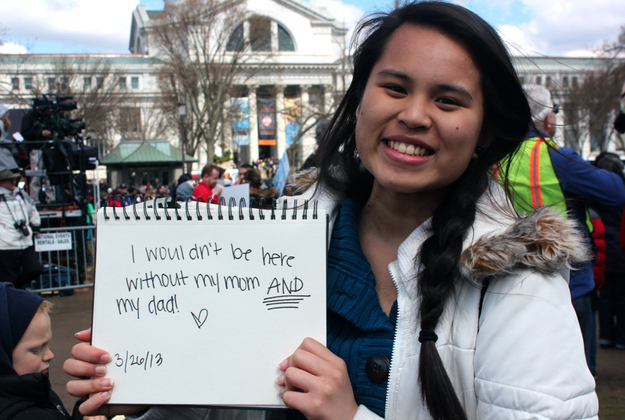 I wouldn't be here
without my mom AND
my dad! ♡
3/26/13
RENTALS-SALES